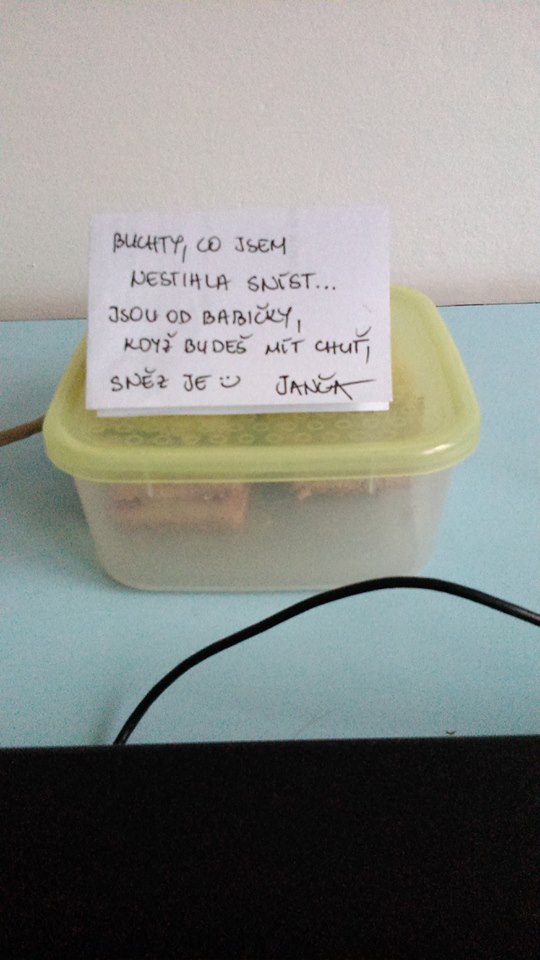 BUCHTY, CO JSEM
NESTIHLA SNÍST...
JSOU OD BABIČKY,
KDYŽ BUDEŠ MÍT CHUŤ,
SNĚZ JE :) JANČA